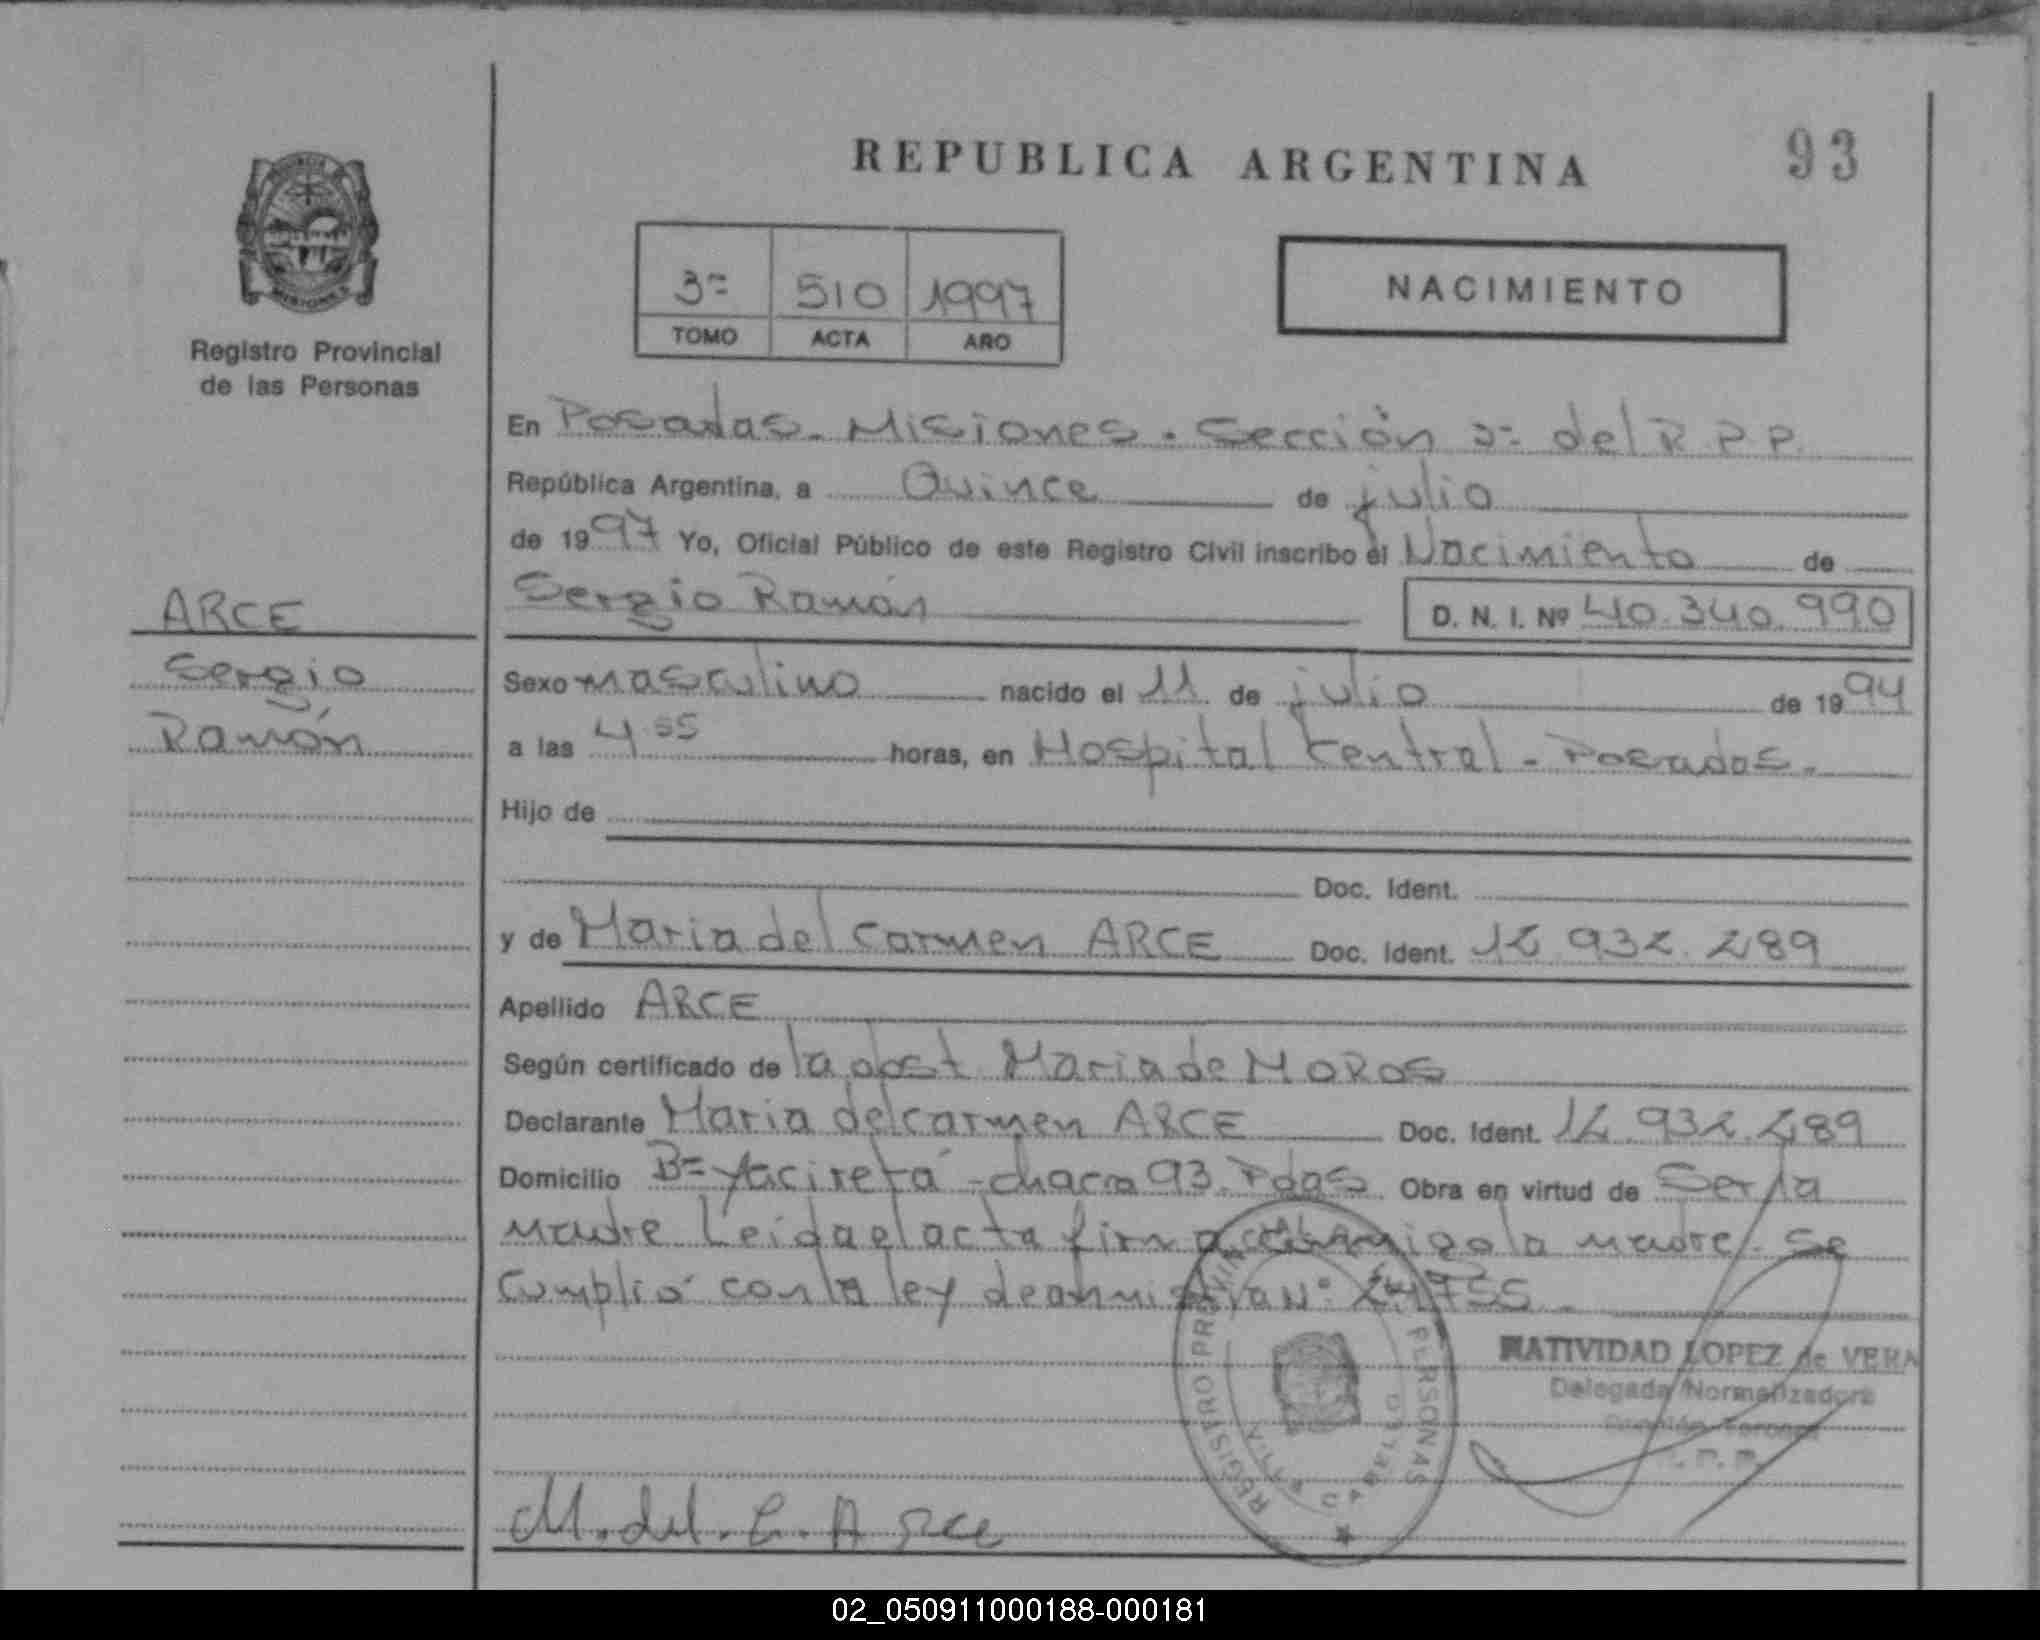 REPUBLICA ARGENTINA
93
PROVINCIA
MISIONES
Registro Provincial
de las Personas
3= 510 1997
TOMO ACTA AÑO
NACIMIENTO
En Posadas. Misiones. Sección 3= del R.P.P.
República Argentina, a Quince de julio
de 1997 Yo, Oficial Público de este Registro Civil inscribo el Nacimiento de
Sergio Ramón D. N. I. Nº 40.340.990
ARCE
Sergio
Ramón
Sexo masculino nacido el 11 de julio de 1994
a las 4 55 horas, en Hospital Central - Posadas.
Hijo de
Doc. Ident.
y de Maria del Carmen ARCE Doc. Ident. 12.932.289
Apellido ARCE
Según certificado de la obst Maria de MOROS
Declarante Maria del carmen ARCE Doc. Ident. 12.932.289
Domicilio B= Yaciretá - chacra 93. Pdas Obra en virtud de Ser la
madre Leida el acta firma conmigo la madre. Se
Cumplió con la ley de amnistia Nº 24755.
REGISTRO PROVINCIAL PERSONAS
VILLA CABELLO
NATIVIDAD LOPEZ de VERA
Delegada Normalizadora
Sección Tercera
R. P. P.
M. del. C. Arce
02_050911000188-000181